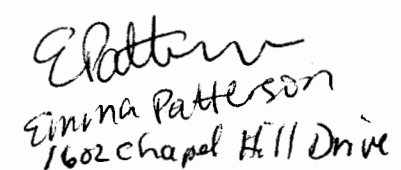 EPatterson
Emma Patterson
1602 Chapel Hill Drive